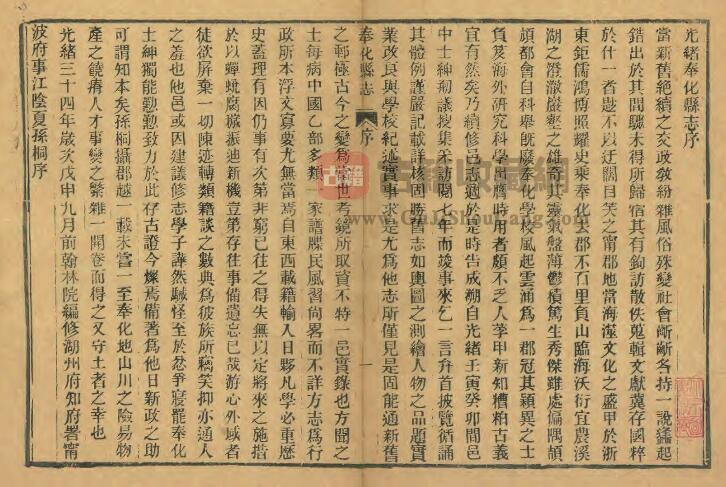 光緒奉化縣志序
當新舊絕續之交政敎紛雜風俗殊變社會斷斷各持一說蠭起
錯出於其間驟未得所歸宿其有鉤訪散佚蒐輯文獻冀存國粹
於什一者趣不以迂闊目笑之甯郡地當海澨文化之盛甲於浙
東鉅儒鴻博照耀史乘奉化去郡不百里負山臨海沃衍宜農溪
湖之澄瀲巖壑之雄奇其靈氣盤薄鬱積篤生秀傑雖處偏隅頡
頏都會自科舉旣廢奉化學校風起雲涌爲一郡冠其穎異之士
負笈海外研究科學出膺時用者頗不乏人茅甲新知糟粕古義
宜有然矣乃續修邑志適於是時告成溯自光緒壬寅癸卯間邑
中士紳剏議搜集采訪閱七年而竣事來乞一言弁首披覽循誦
其體例謹嚴記載詳核固勝舊志如輿圖之測繪人物之品題實
業改良與學校紀述實事求是尤爲他志所僅見是固能通新舊
奉化縣志 序 一
之郵極古今之變爲濟世考鏡所取資不特一邑實錄也方聞之
士每病中國乙部多類一家譜牒民風習尙畧而不詳方志爲行
政所本浮文寡要尤無當焉自東西載籍輸入日夥凡學必重歷
史蓋理有因仍事有次第非窮已往之得失無以定將來之施措
於以蟬蛻腐穢振迪新機豈第存往事備遺忘已哉游心外域者
徒欲屏棄一切陳迹轉類籍談之數典爲彼族所竊笑抑亦通人
之羞也他邑或因建議修志學子譁然駴怪至於忿爭寢罷奉化
士紳獨能懃懃致力於此存古證今燦焉備著爲他日新政之助
可謂知本矣孫桐攝郡越一載未嘗一至奉化地山川之險易物
產之饒瘠人才事變之繁雜一開卷而得之又守土者之幸也
光緒三十四年歲次戊申九月前翰林院編修湖州府知府署甯
波府事江陰夏孫桐序
古籍
古籍收藏網
www.GuJiShouCang.com